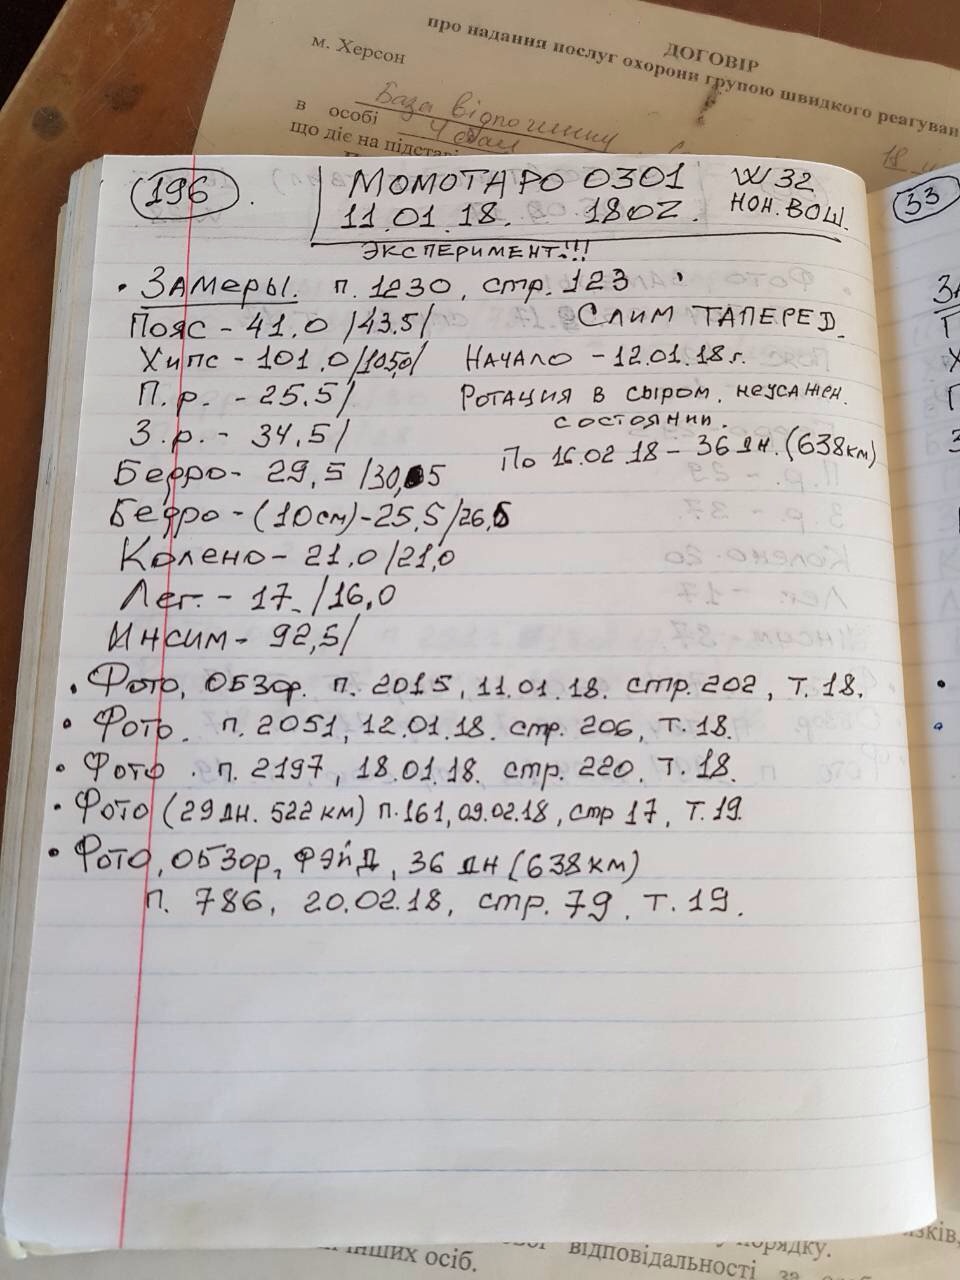 ДОГОВІР
про надання послуг охорони групою швидкого реагуван
м. Херсон
в особі База відпочинку
що діє на підставі
196.
МОМОТАРО 0301 W32
11.01.18. 18OZ. НОН. ВОШ.
ЭКСПЕРИМЕНТ!!!
• ЗАМЕРЫ. п. 1230, стр. 123
Пояс - 41.0 /43.5/ СЛИМ ТАПЕРЕД.
Хипс - 101.0 /105,0/ НАЧАЛО - 12.01.18 г.
П.р. - 25.5/ РОТАЦИЯ В СЫРОМ, НЕУСАЖЕН.
З.р. - 34,5/ СОСТОЯНИИ.
Бедро - 29,5 /30,5 По 16.02.18 - 36 дн. (638 км)
Бедро - (10 см) - 25,5/26,5
Колено - 21.0/21,0
Лег. - 17. /16,0
Инсим - 92,5/
• Фото, ОБЗОР. п. 2015, 11.01.18. стр. 202, т. 18.
• Фото. п. 2051, 12.01.18. стр. 206, т. 18.
• Фото. п. 2197, 18.01.18. стр. 220. т. 18.
• Фото (29 дн. 522 км) п. 161, 09.02.18, стр 17, т. 19.
• Фото, ОБЗОР, ФЭЙД, 36 дн (638 км)
п. 786, 20.02.18, стр. 79, т. 19.
33
порядку.
інших осіб.
відповідальності за